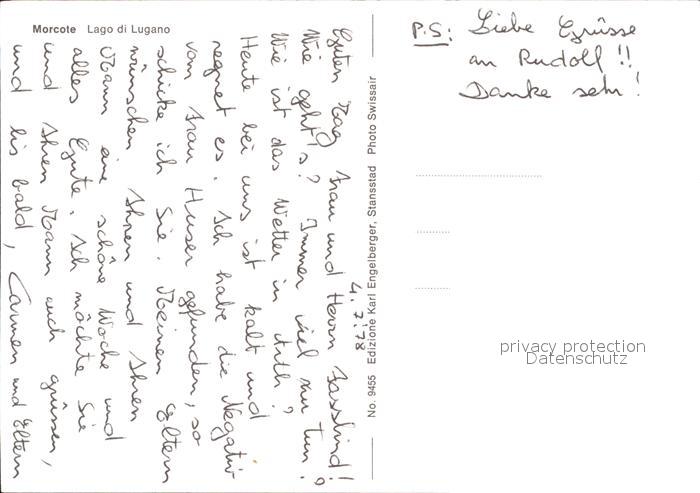 Morcote Lago di Lugano
P.S: Liebe Grüsse
an Rudolf!!
Danke sehr!
4. 7. 78
Guten Tag Frau und Herrn Fasslind!
Wie geht's? Immer viel zu tun?
Wie ist das Wetter in Arth?
Heute bei uns ist kalt und
regnet es. Ich habe die Negativ
von Frau Huser gefunden, so
schicke ich Sie. Meinen Eltern
wünschen Ihnen und Ihren
Mann eine schöne Woche und
alles Gute. Ich möchte Sie
und Ihren Mann auch grüssen,
und bis bald, Carmen und Eltern
No. 9455 Edizione Karl Engelberger, Stansstad Photo Swissair
privacy protection
Datenschutz